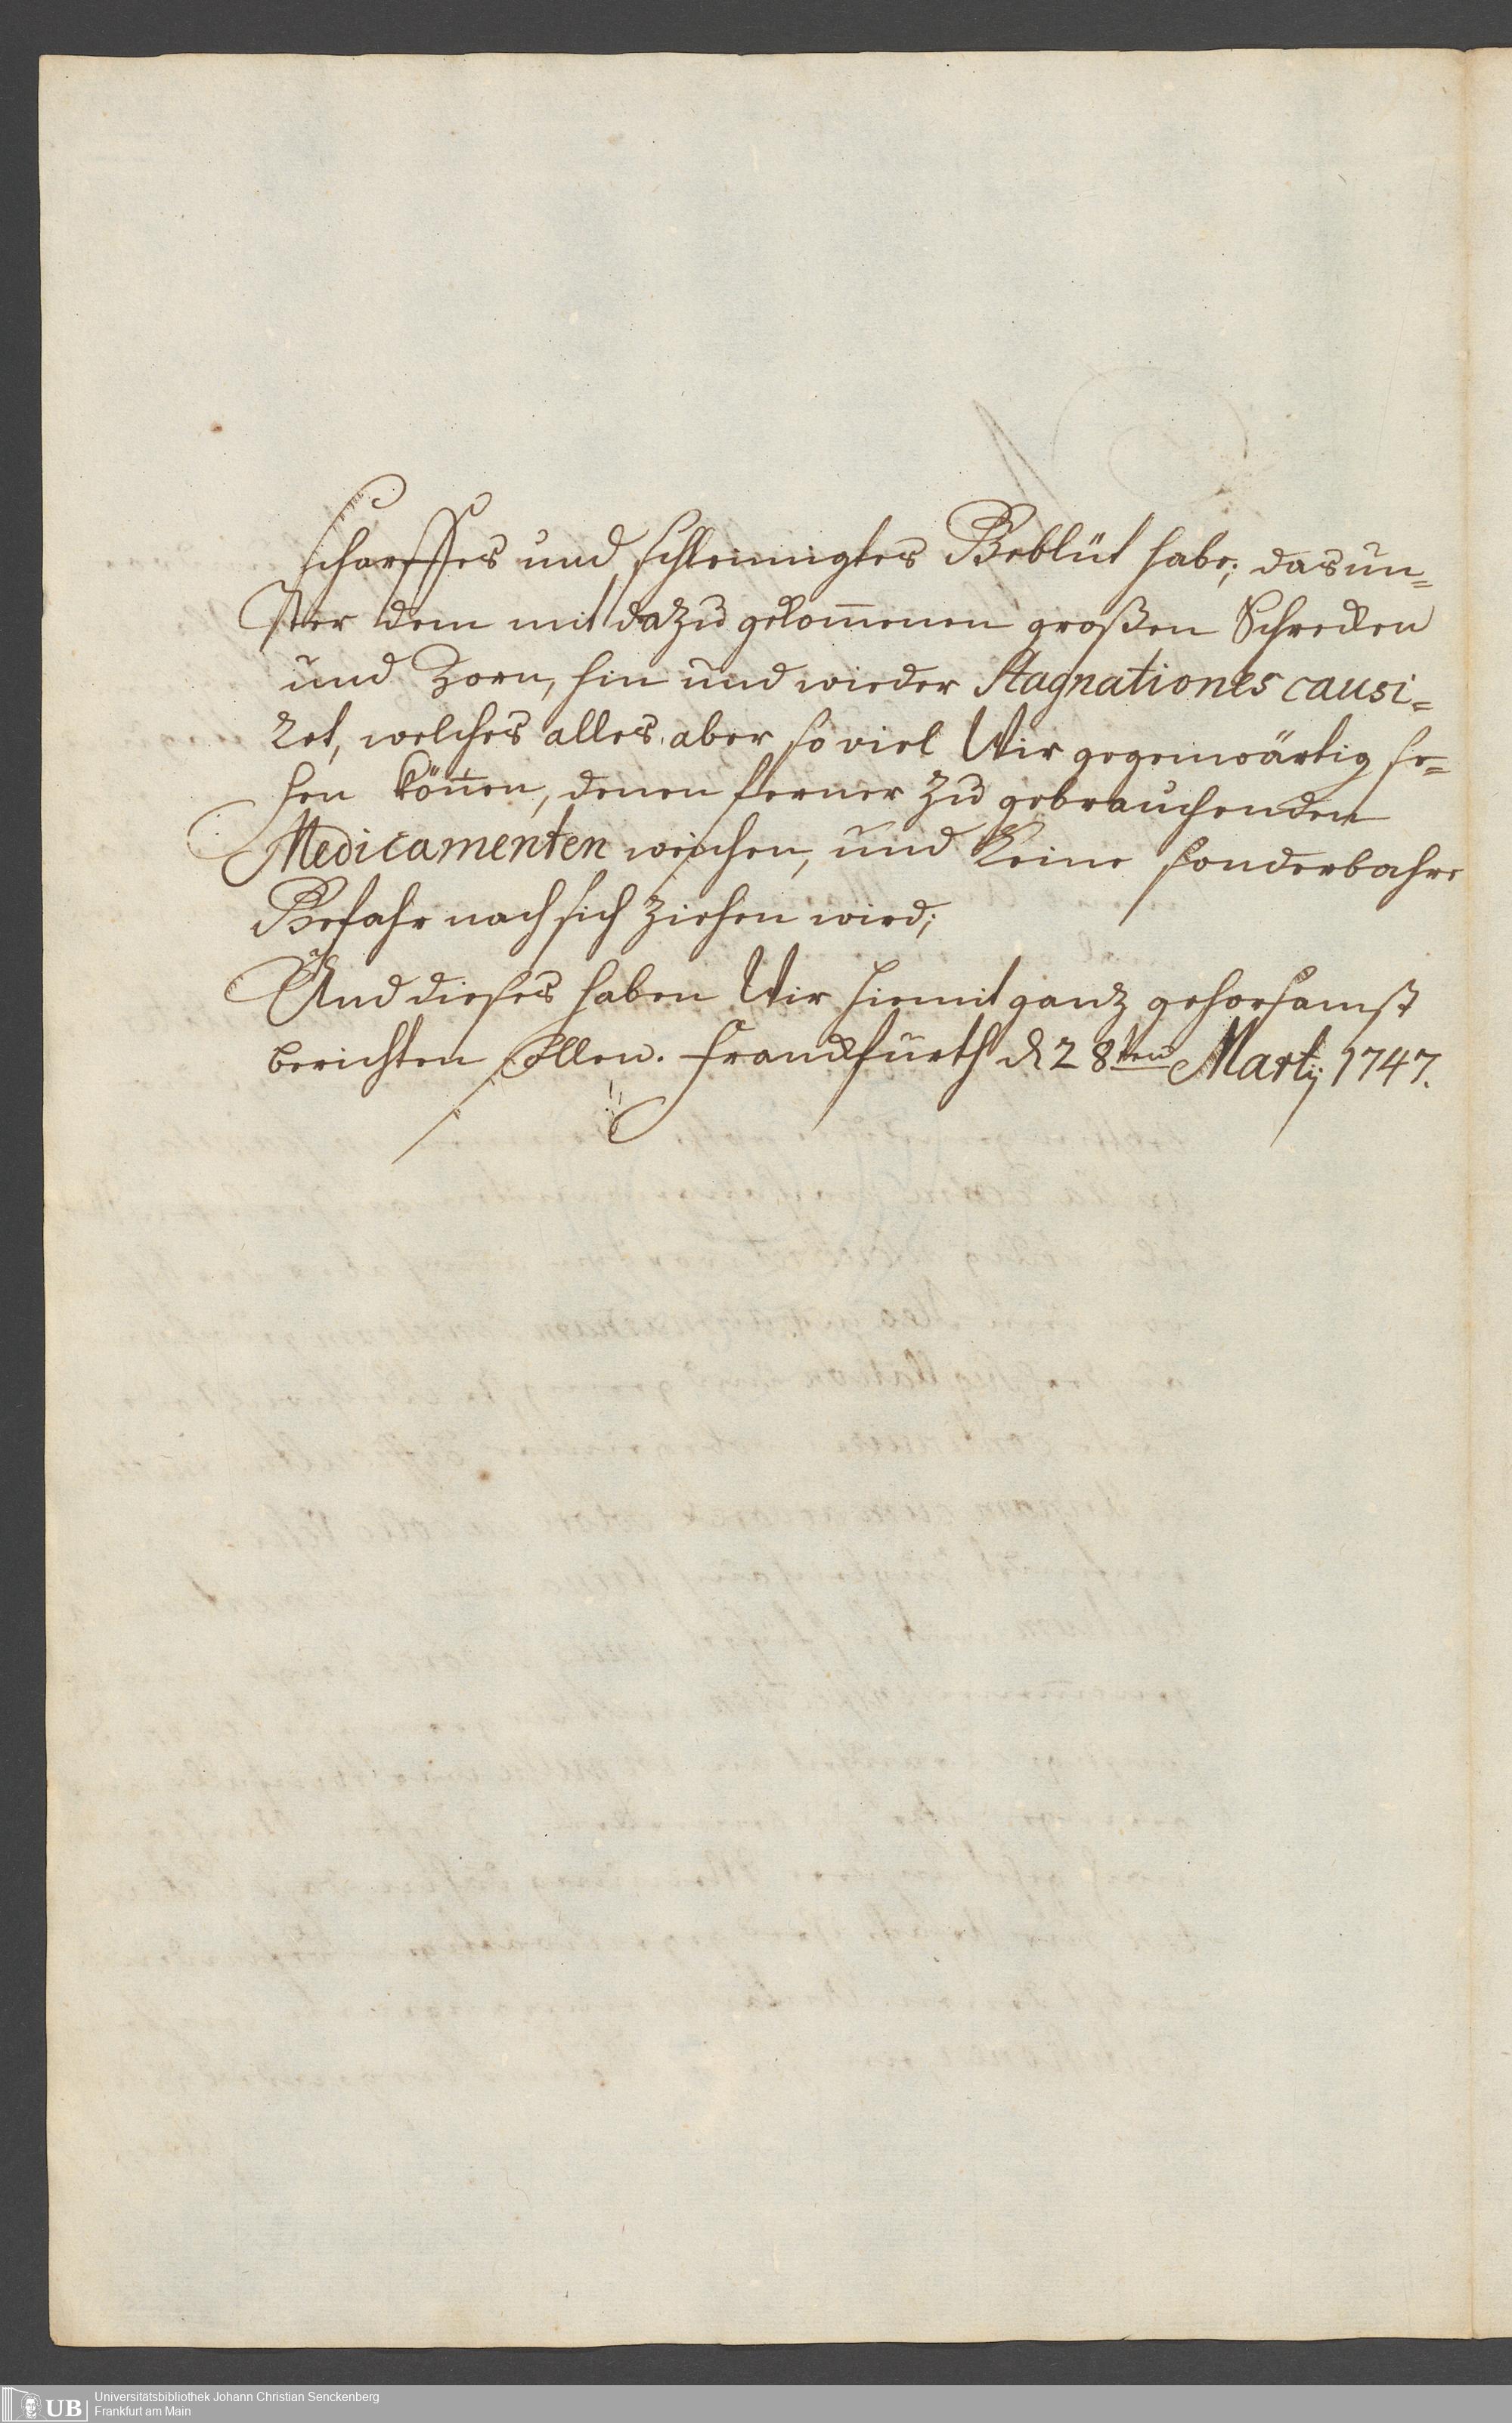 scharffes und schleimigtes Geblüt habe; das un=
ter dem mit dazu gekom̄enen großen Schrecken
und Zorn, hin und wieder Stagnationes causi=
ret, welches alles aber so viel Wir gegenwärtig se=
hen kön̄en, denen ferner zu gebrauchenden
Medicamenten weichen, und keine sonderbahre
Gefahr nach sich ziehen wird;
Und dieses haben Wir hiemit ganz gehorsamst
berichten sollen. Franckfurth d 28ten Martij 1747.
UB
Universitätsbibliothek Johann Christian Senckenberg
Frankfurt am Main